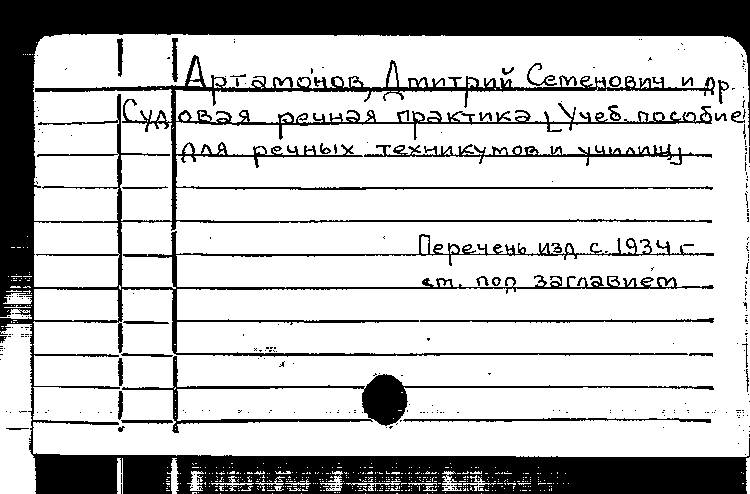 Артамонов, Дмитрий Семенович и др.
Судовая речная практика. [Учеб. пособие
для речных техникумов и училищ].
Перечень изд. с 1934 г.
см. под заглавием